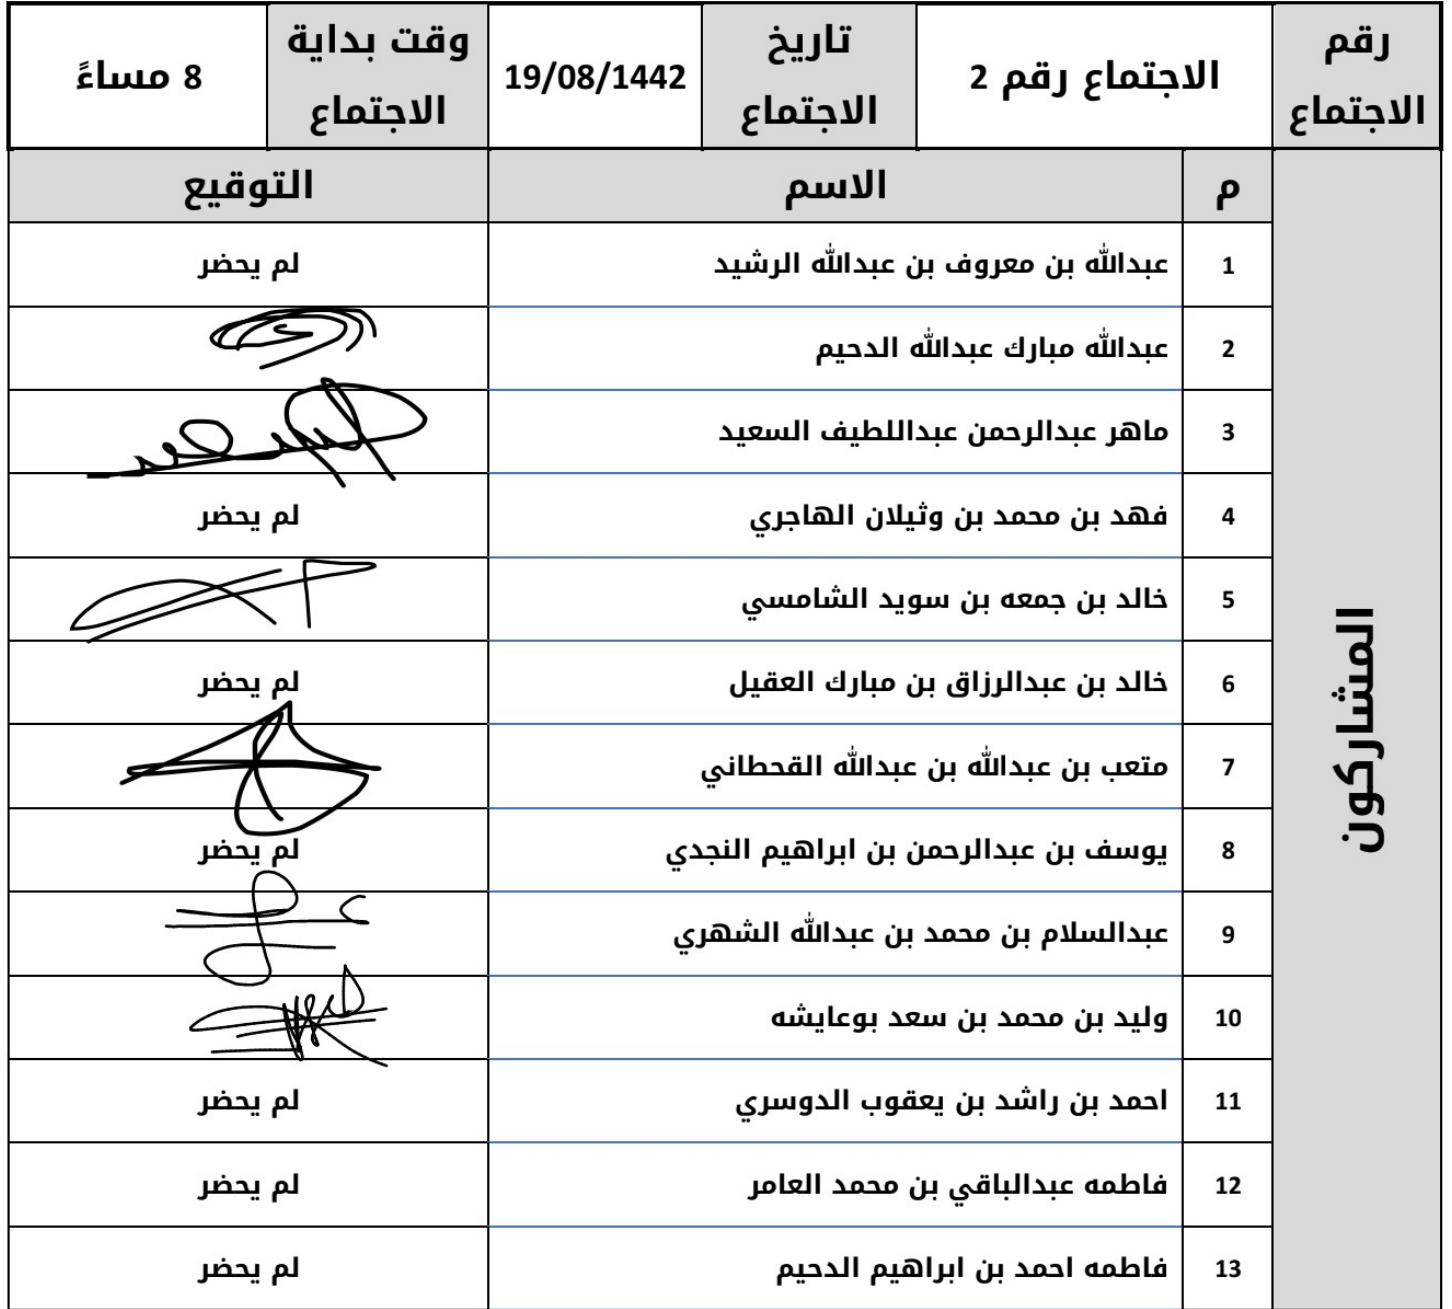 رقم الاجتماع
الاجتماع رقم 2
تاريخ الاجتماع
19/08/1442
وقت بداية الاجتماع
8 مساءً
المشاركون
م الاسم التوقيع
1 عبدالله بن معروف بن عبدالله الرشيد لم يحضر
2 عبدالله مبارك عبدالله الدحيم
3 ماهر عبدالرحمن عبداللطيف السعيد
4 فهد بن محمد بن وثيلان الهاجري لم يحضر
5 خالد بن جمعه بن سويد الشامسي
6 خالد بن عبدالرزاق بن مبارك العقيل لم يحضر
7 متعب بن عبدالله بن عبدالله القحطاني
8 يوسف بن عبدالرحمن بن ابراهيم النجدي لم يحضر
9 عبدالسلام بن محمد بن عبدالله الشهري
10 وليد بن محمد بن سعد بوعايشه
11 احمد بن راشد بن يعقوب الدوسري لم يحضر
12 فاطمه عبدالباقي بن محمد العامر لم يحضر
13 فاطمه احمد بن ابراهيم الدحيم لم يحضر